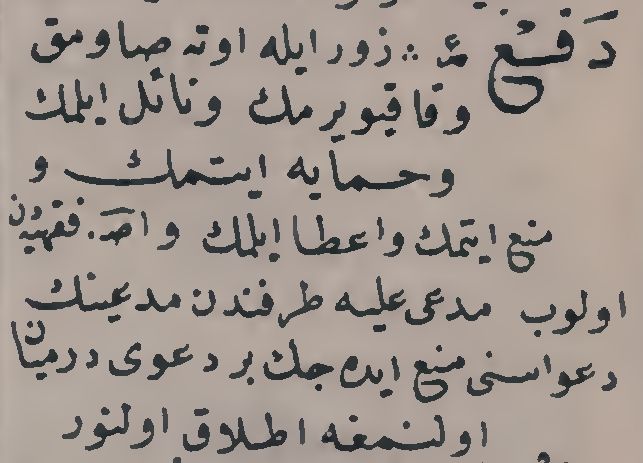 دَفْعْ عر ؞ زور ايله اوته صاومق
وقاقيويرمك ونائل ايلمك
وحمايه ايتمك و
منع ايتمك واعطا ايلمك واصـ. فقهيّون
اولوب مدعى عليه طرفندن مدعينك
دعواسنى منع ايده جك بر دعوى درميان
اولنمغه اطلاق اولنور